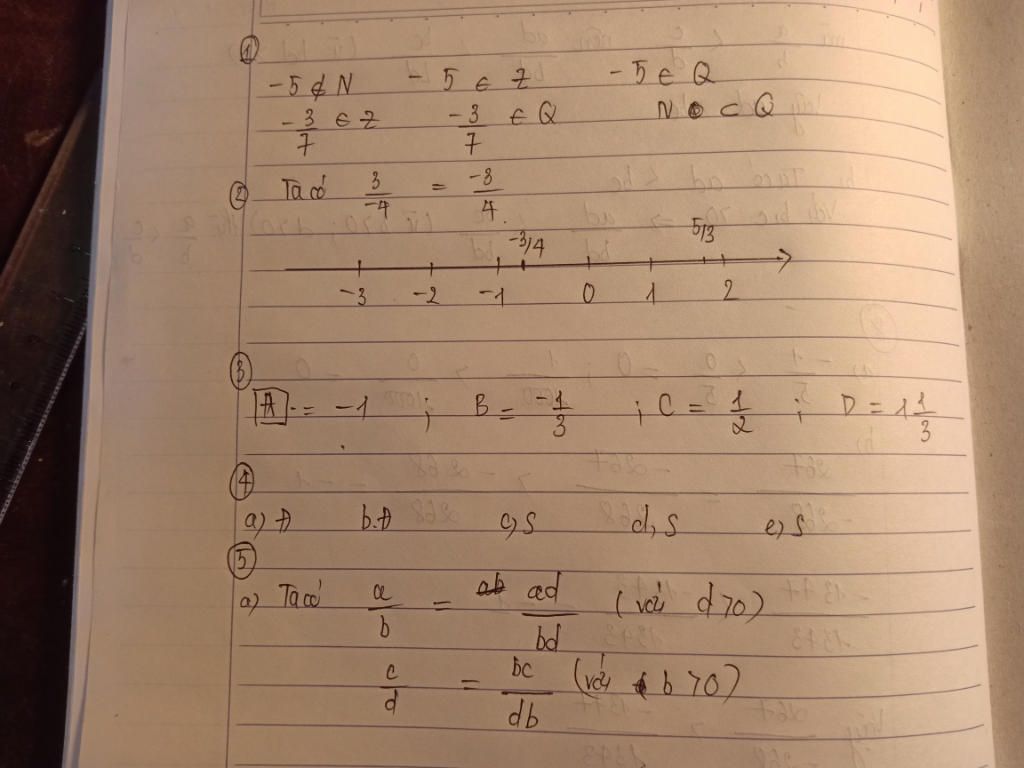 ①
-5 ∉ N - 5 ∈ Z - 5 ∈ Q
-3/7 ∈ Z -3/7 ∈ Q N ⊂ Q
② Ta có 3/-4 = -3/4.
-3/4 5/3
-3 -2 -1 0 1 2
③
A = -1 ; B = -1/3 ; C = 1/2 ; D = 1 1/3
④
a) Đ b. Đ c, S d, S e, S
⑤
a) Ta có a/b = ad/bd (với d > 0)
c/d = bc/db (với b > 0)